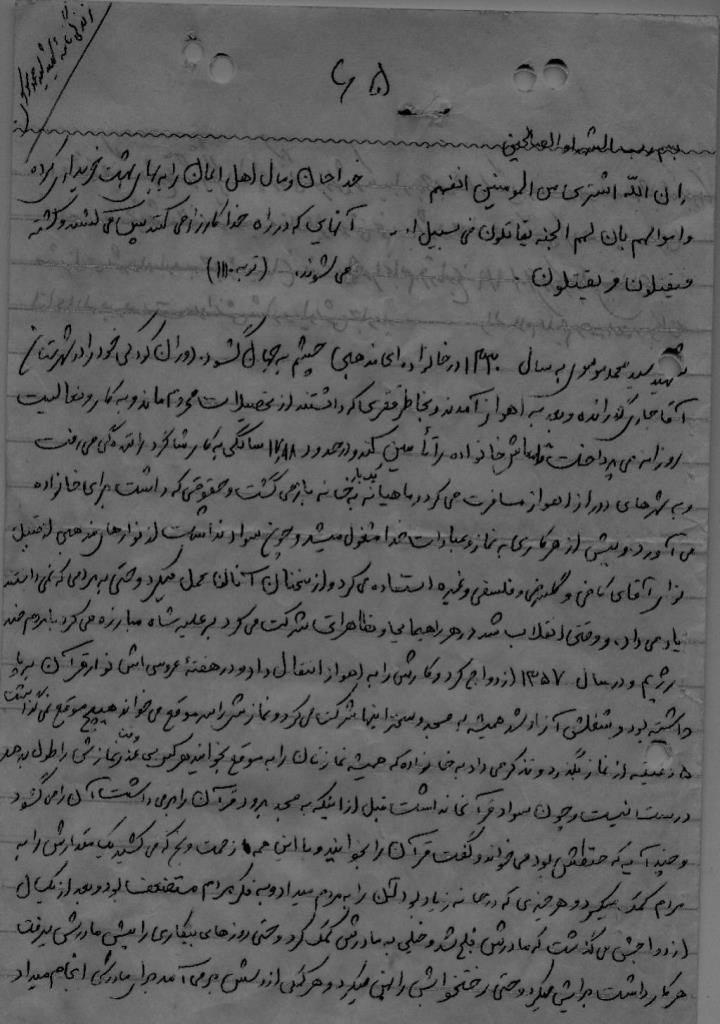 ۶۵
بسم رب الشهدا و الصدیقین
ان الله اشتری من المومنین انفسهم خدا جان و مال اهل ایمان را به بهای بهشت خریداری کرده
و اموالهم بان لهم الجنه یقاتلون فی سبیل ا.. آنهایی که در راه خدا کارزار می کنند پس می کشند و کشته
فیقتلون و یقتلون می شوند. (توبه ۱۱۰)
شهید سید محمد موسوی به سال در خانواده ای مذهبی چشم به جهان گشود. دوران کودکی خود را در شهر
آقاجاری گذرانده و بعد به اهواز آمدند و بخاطر فقری که داشتند از تحصیلات محروم ماند و به کار و فعالیت
روزانه می پرداخت تا معاش خانواده را تأمین کند و در حدود ۱۷،۱۸ سالگی به کار شاگرد رانندگی می رفت
و به شهرهای دور از اهواز مسافرت می کرد و ماهیانه یکبار به خانه باز می گشت و حقوقی که داشت برای خانواده
می آورد و بیش از هر کاری به نماز و عبادات خدا مشغول میشد و چون سواد نداشت از نوارهای مذهبی از قبیل
نوار آقای کافی و و فلسفی و غیره استفاده می کرد و از سخنان آنان عمل میکرد و حتی به مردمی که نمی دانستند
یاد می داد، و وقتی انقلاب شد در هر راهپیمایی و تظاهرات شرکت می کرد بر علیه شاه مبارزه می کرد با مردم ضد
رژیم و در سال ۱۳۵۷ ازدواج کرد و کارش را به اهواز انتقال داد و در هفتهٔ عروسی اش نوار قرآن بر پا
داشته بود و شغلش آزاد شد همیشه به مسجد و سخنرانیها شرکت می کرد و نمازش را سر موقع می خواند هیچ موقع نمی گذاشت
۵ دقیقه از نماز بگذرد و تذکر می داد به خانواده که همیشه نمازتان را به موقع بخوانید هر کس بی عذر نمازش را طول بدهد
درست نیست و چون سواد قرآن نداشت قبل از اینکه به مسجد برود قرآن را بر می داشت آن را می گشود
و چند آیه که حفظش بود می خواند و گفت قرآن را بخوانید و با این همه زحمت و رنج که می کشید یک مقدارش را به
مردم کمک میکرد و هر چیزی که در خانه زیاد بود آن را به مردم میداد و به فکر مردم مستضعف بود و بعد از یکسال
ازدواجش می گذشت که مادرش فلج شد و خیلی به مادرش کمک کرد و حتی روزهای بیکاری را پیش مادرش میرفت
هر کار داشت برایش میکرد و حتی رختخوابش را پهن میکرد و هر کاری از دستش بر می آمد برای مادرش انجام میداد